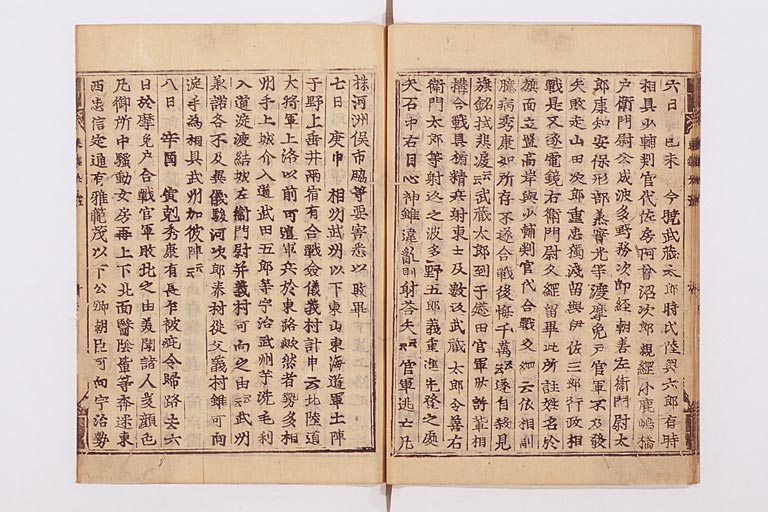 六日 己未 今曉武藏太郎時氏陸奥六郎有時
相具少輔判官代佐房阿曾沼次郎親經小鹿嶋橘
左衛門尉公成波多野務次郎経朝善左衛門尉太
郎康知安保形部丞實光等渡摩免戸官軍不及發
矢敗走山田次郎重忠獨殘留與伊佐三郎行政相
戦是又逐電鏡右衛門尉久經留畢此所註姓名於
旗面立置高岸與少輔判官代合戰久經云依相副
臆病秀康如所存不遂合戦後悔千萬云云遂自殺見
旗銘拭悲淚云云武蔵太郎到于莚田官軍卅許輩相
搆合戦負楯精兵射東士及数返武蔵太郎令善右
衛門太郎等射返之波多野五郎義重進先登之處
矢石中右目心神雖違亂則射答矢云云官軍逃亡凡
株河洲俣市脇等要害悉以敗畢
七日 庚申 相州武州以下東山東海道軍士陣
于野上垂井兩宿有合戰僉儀義村計申云北陸道
大將軍上洛以前可遣軍兵於東路歟然者勢多相
州手上城介入道武田五郎等宇治武州芋洗毛利
入道淀渡結城左衛門尉并義村可向之由云云武州
承諾各不及異儀駿河次郎泰村從父義村雖可向
淀手為相具武州加彼陣云云
八日 辛酉 寅剋秀康有長乍被疵令歸路去六
日於摩免戸合戰官軍敗北之由奏聞諸人変顔色
凡御所中騷動女房再上下北面醫陰輩等奔迷東
西忠信定通有雅範茂以下公卿朝臣可向宇治勢